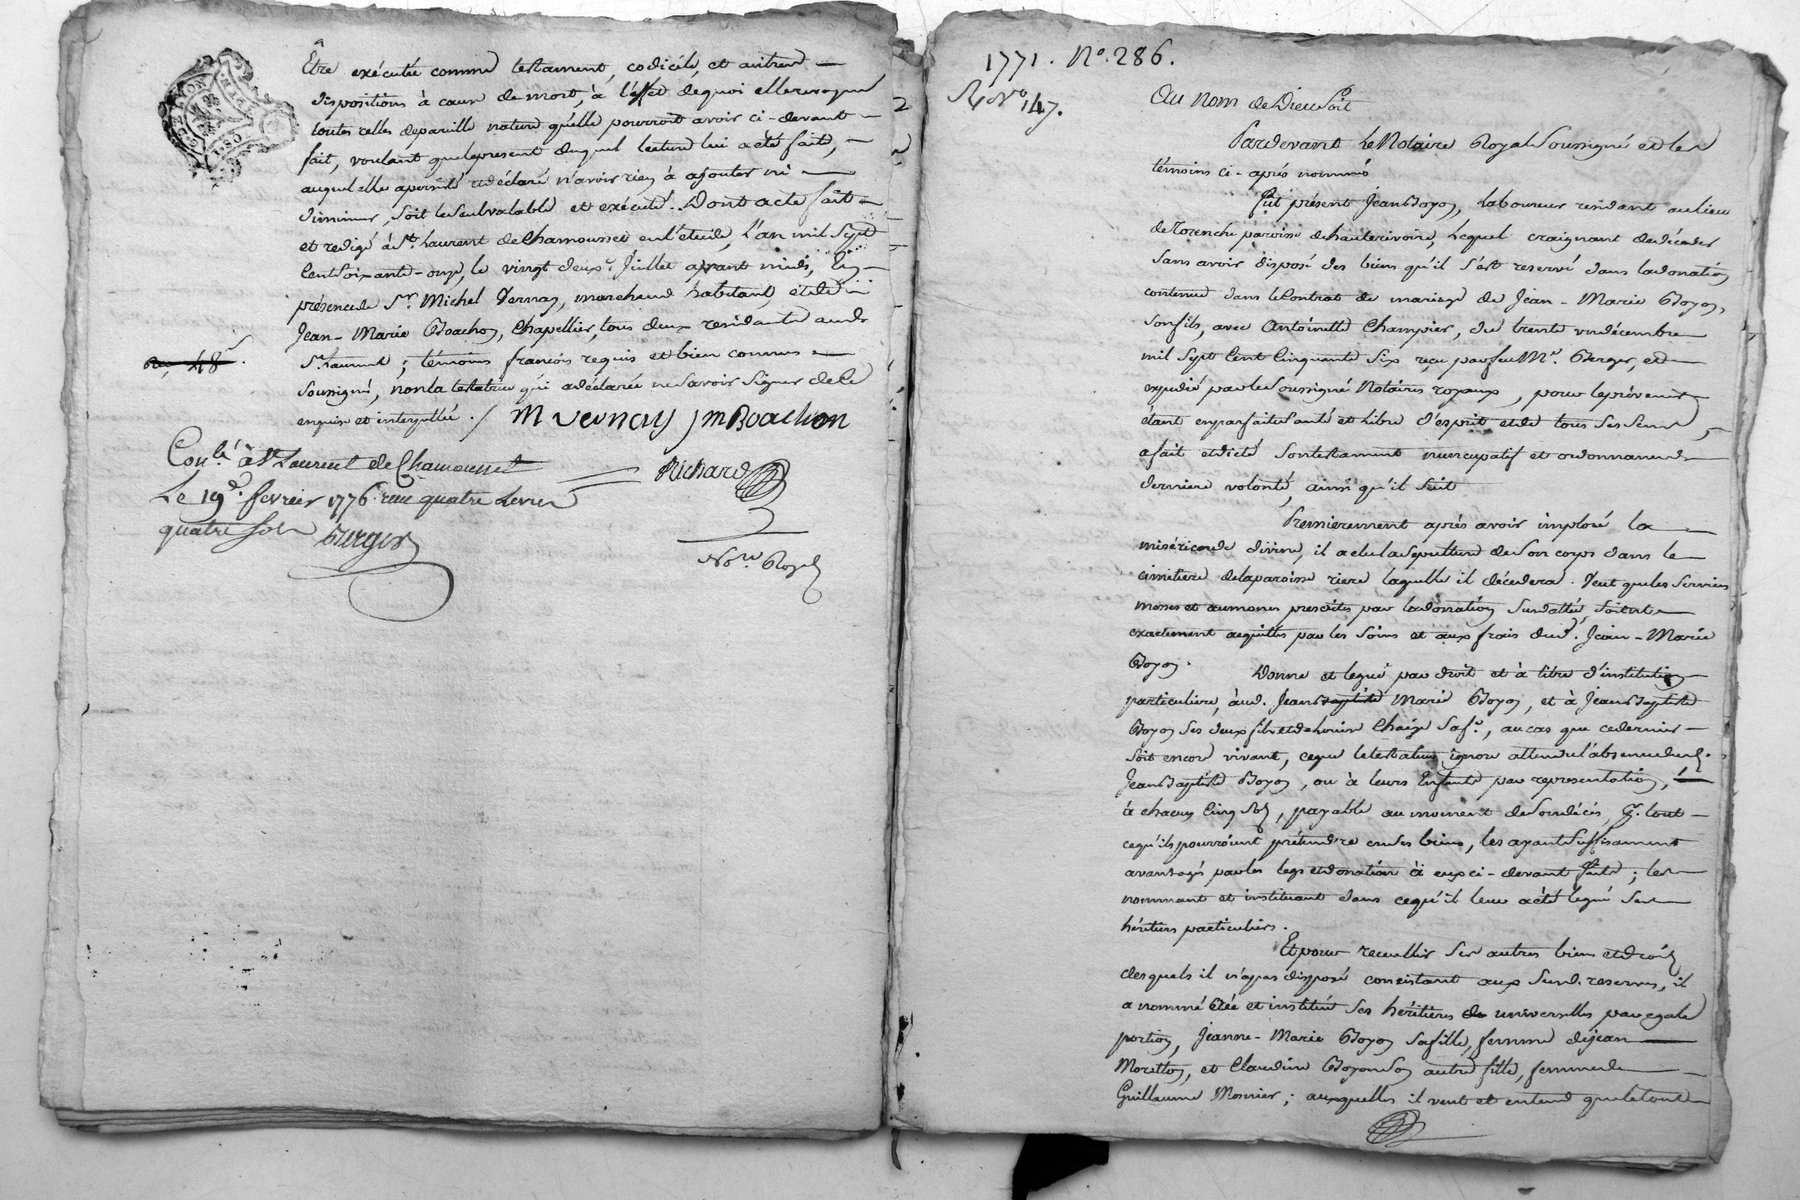 Être exécuté comme testament, codicile, et autres
dispositions à cause de mort, à l'effet de quoi elle revoque
toutes celles de pareille nature qu'elle pourroit avoir ci-devant
fait, voulant que le present duquel lecture lui a été fait,
auquel elle a persisté et déclaré n'avoir rien à ajouter ni
diminuer, soit le seul valable et exécuté. Dont acte fait
et redigé à St. Laurent de Chamousset en l'étude, l'an mil sept
cent soixante-onze, le vingt deuxe. Juillet avant midi, En
présence de Sr. Michel Vernay, marchand habitant, et de
Jean-Marie Boachon, Chapellier, tous deux residants aud.
St. Laurent; témoins francois requis et bien connus
soussigné, non la testatrice qui a déclaré ne savoir signer de ce
enquise et interpellée. / M Vernay J m Boachon
Conlé. à St Laurent de Chamousset
Richard
Le 19e. fevrier 1776. reçu quatre Livres
quatre sols Berger
Nore. Royal
1771. No. 286.
147.
Au nom de Dieu soit
Pardevant le Notaire Royal soussigné et les
témoins ci-après nommés
Fut présent Jean Boyon, laboureur residant au lieu
de Lorenche paroisse de hauterivoire, Lequel craignant de décéder
sans avoir disposé des biens qu'il s'est reservé dans la donation
contenue dans le Contrat de mariage de Jean-Marie Boyon,
son fils, avec Antoinette Champier, du trente un décembre
mil sept cent cinquante six, reçu par feu Me. Berger, et
expedié par le soussigné Notaires royaux, pour le prévenir
étant en parfaite santé et libre d'esprit et de tous ses sens,
a fait et dicté son testament nuncupatif et ordonnance de
derniere volonté, ainsi qu'il suit
Premierement après avoir imploré la
miséricorde divine, il a élu la sépulture de son corps dans le
cimetiere de la paroisse riere laquelle il décédera. Veut que les services
messes et aumones prescrites par la donation susdattée soient
exactement acquittés par les soins et aux frais dud. Jean-Marie
Boyon. Donne et legue par droit et à titre d'institution
particuliere, aud. Jean Baptiste Marie Boyon, et à Jean Baptiste
Boyon ses deux fils et de Chaize sa fe., au cas que ce dernier
soit encore vivant, ce que le testateur ignore attendu l'absence dud.
Jean Baptiste Boyon, ou à leurs Enfants par representation,
à chacun cinq sols, payable au moment de son décés, pr. tout
ce qu'ils pourroient prétendre en ses biens, les ayant suffisament
avantagés par les legs et donation à eux ci-devant faits; les
nommant et instituant dans ce qu'il leur a été légué ses
héritiers particuliers.
Et pour recueillir ses autres biens et droits
desquels il n'a pas disposé consistant aux susd. reserves, il
a nommé créé et institué ses héritieres universelles par egale
portion, Jeanne-Marie Boyon sa fille, femme de Jean
Moretton, et Claudine Boyon son autre fille, femme de
Guillaume Mosnier; auxquelles il veut et entend que le tout